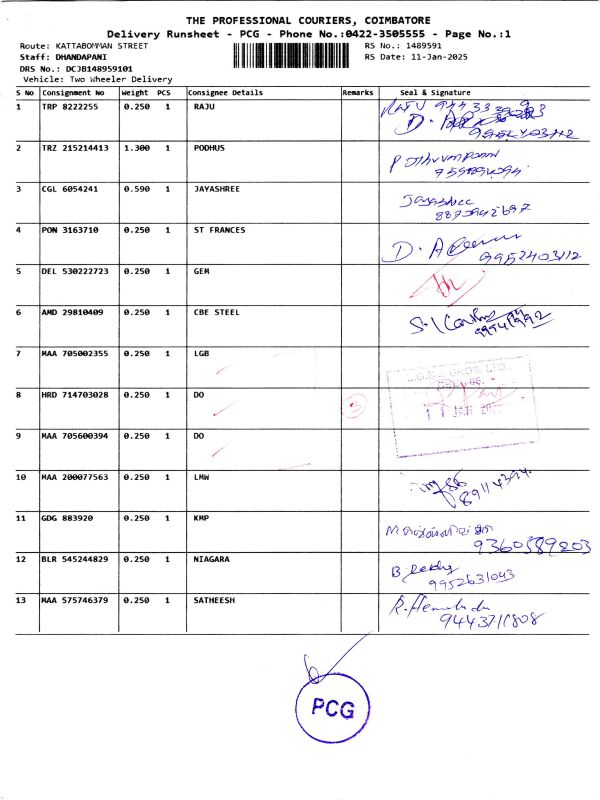 THE PROFESSIONAL COURIERS, COIMBATORE
Delivery Runsheet - PCG - Phone No.:0422-3505555 - Page No.:1
Route: KATTABOMMAN STREET RS No.: 1489591
Staff: DHANDAPANI RS Date: 11-Jan-2025
DRS No.: DCJB148959101
Vehicle: Two Wheeler Delivery
S No Consignment No Weight PCS Consignee Details Remarks Seal & Signature
1 TRP 8222255 0.250 1 RAJU
9952403112
2 TRZ 215214413 1.300 1 PODHUS
3 CGL 6054241 0.590 1 JAYASHREE Jayashree
8870992697
4 PON 3163710 0.250 1 ST FRANCES D.
9952403112
5 DEL 530222723 0.250 1 GEM
6 AMD 29810409 0.250 1 CBE STEEL
7 MAA 705002355 0.250 1 LGB
8 HRD 714703028 0.250 1 DO 3
11 JAN
9 MAA 705600394 0.250 1 DO
10 MAA 200077563 0.250 1 LMW
11 GDG 883920 0.250 1 KMP
9360589203
12 BLR 545244829 0.250 1 NIAGARA B.
9952631043
13 MAA 575746379 0.250 1 SATHEESH R.
PCG